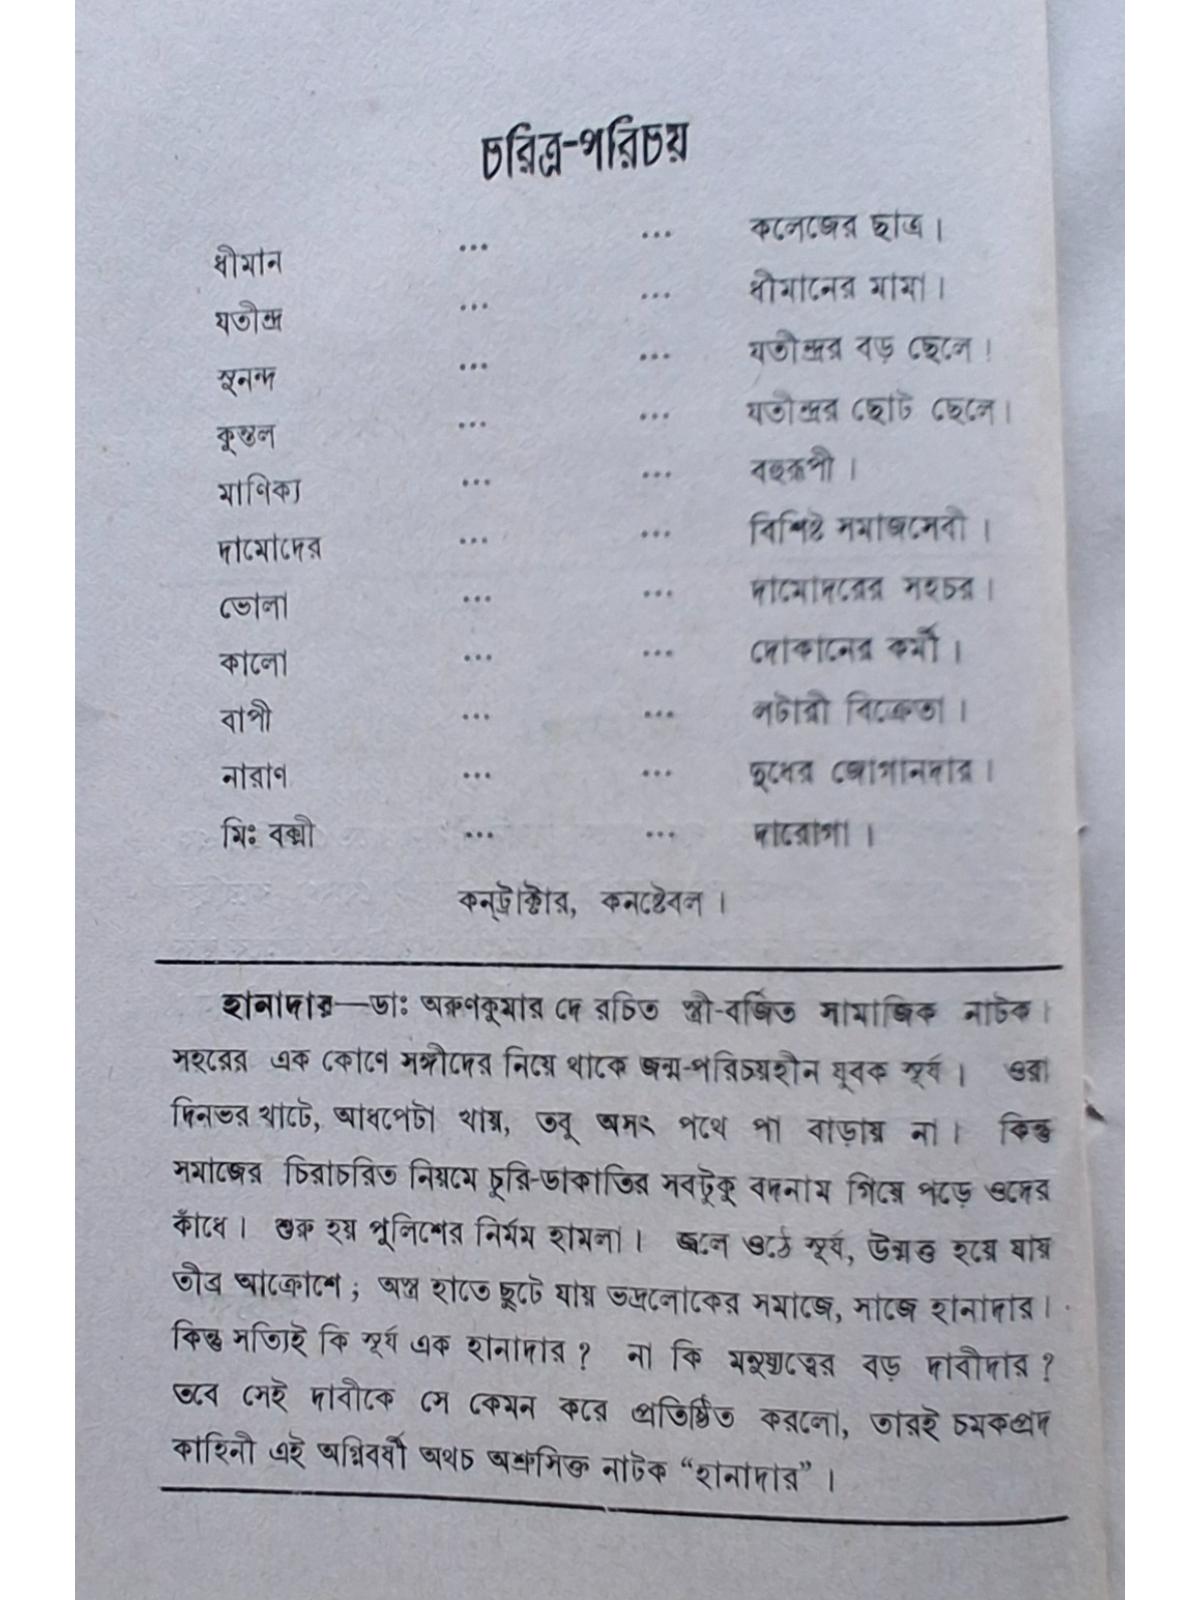 চরিত্র-পরিচয়
ধীমান ... ... কলেজের ছাত্র ।
যতীন্দ্র ... ... ধীমানের মামা ।
সুনন্দ ... ... যতীন্দ্রর বড় ছেলে ।
কুন্তল ... ... যতীন্দ্রর ছোট ছেলে ।
মাণিক্য ... ... বহুরূপী ।
দামোদের ... ... বিশিষ্ট সমাজসেবী ।
ভোলা ... ... দামোদরের সহচর ।
কালো ... ... দোকানের কর্মী ।
বাপী ... ... লটারী বিক্রেতা ।
নারাণ ... ... দুধের জোগানদার ।
মিঃ বক্সী ... ... দারোগা ।
কনট্রাক্টার, কনষ্টেবল ।
হানাদার—ডাঃ অরুণকুমার দে রচিত স্ত্রী-বর্জিত সামাজিক নাটক ।
সহরের এক কোণে সঙ্গীদের নিয়ে থাকে জন্ম-পরিচয়হীন যুবক সূর্য । ওরা
দিনভর খাটে, আধপেটা খায়, তবু অসৎ পথে পা বাড়ায় না । কিন্তু
সমাজের চিরাচরিত নিয়মে চুরি-ডাকাতির সবটুকু বদনাম গিয়ে পড়ে ওদের
কাঁধে । শুরু হয় পুলিশের নির্মম হামলা । জ্বলে ওঠে সূর্য, উন্মত্ত হয়ে যায়
তীব্র আক্রোশে ; অস্ত্র হাতে ছুটে যায় ভদ্রলোকের সমাজে, সাজে হানাদার ।
কিন্তু সত্যিই কি সূর্য এক হানাদার ? না কি মনুষ্যত্বের বড় দাবীদার ?
তবে সেই দাবীকে সে কেমন করে প্রতিষ্ঠিত করলো, তারই চমকপ্রদ
কাহিনী এই অগ্নিবর্ষী অথচ অশ্রুসিক্ত নাটক “হানাদার” ।